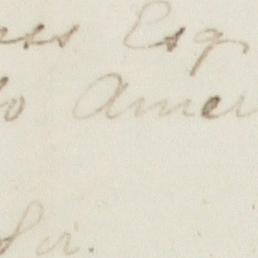 ess Esq
to Amer
Sir.